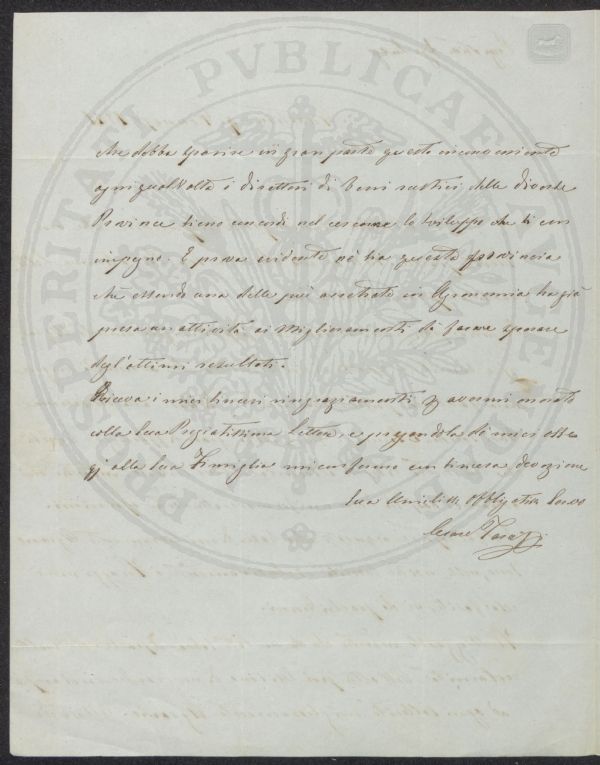 PROSPERITATI PVBLICAE AVGENDAE
che debba sparire in gran parte questo inconveniente
ogni qual Volta i direttori di beni rustici delle diverse
Province tieno cercando nel cercarne lo sviluppo che ti con
impegno. E prova evidente ne ha questa provincia
che essendo una delle più arretrate in Agronomia ha già
preso un attività ai Miglioramenti da farne sperare
degl'ottimi resultati.
Riceva i miei sinceri ringraziamenti p avermi onorato
colla Sua Pregiatissima Lettera, e pregandola de miei osse
qj alla Sua Famiglia mi confermo con sincera devozione
Sua Umiliss. Obbligatiss Servo
Cesare